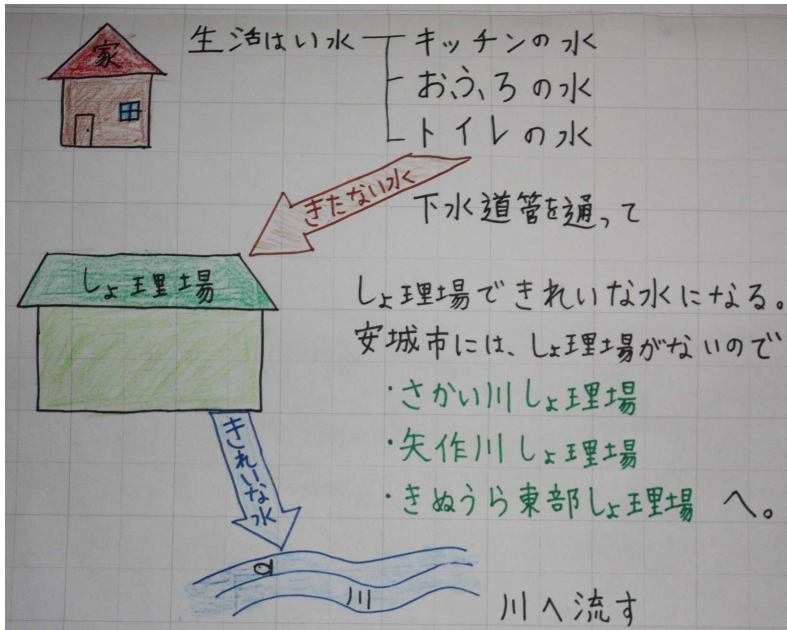 家
生活はい水
キッチンの水
おふろの水
トイレの水
きたない水
下水道管を通って
しょ理場
しょ理場できれいな水になる。
安城市には、しょ理場がないので
・さかい川しょ理場
・矢作川しょ理場
・きぬうら東部しょ理場 へ。
きれいな水
川
川へ流す